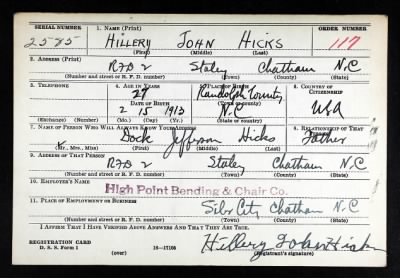 SERIAL NUMBER 1. NAME (Print) ORDER NUMBER
2585 HILLERY JOHN HICKS 117
(First) (Middle) (Last)
2. ADDRESS (Print)
RFD 2 Staley Chatham N.C
(Number and street or R. F. D. number) (Town) (County) (State)
3. TELEPHONE 4. AGE IN YEARS 5. PLACE OF BIRTH 6. COUNTRY OF CITIZENSHIP
27 Randolph County
DATE OF BIRTH
2 15 1913 N.C USA
(Exchange) (No.) (Mo.) (Day) (Yr.) (State or country)
7. NAME OF PERSON WHO WILL ALWAYS KNOW YOUR ADDRESS 8. RELATIONSHIP OF THAT PERSON
Dock Jefferson Hicks Father
(Mr., Mrs., Miss) (First) (Middle) (Last)
9. ADDRESS OF THAT PERSON
RFD 2 Staley Chatham N.C
(Number and street or R. F. D. number) (Town) (County) (State)
10. EMPLOYER'S NAME
High Point Bending & Chair Co.
11. PLACE OF EMPLOYMENT OR BUSINESS
Siler City Chatham N.C
(Number and street or R. F. D. number) (Town) (County) (State)
I AFFIRM THAT I HAVE VERIFIED ABOVE ANSWERS AND THAT THEY ARE TRUE.
REGISTRATION CARD
D. S. S. Form 1 (over) 16—17105 Hillery John Hicks
(Registrant's signature)